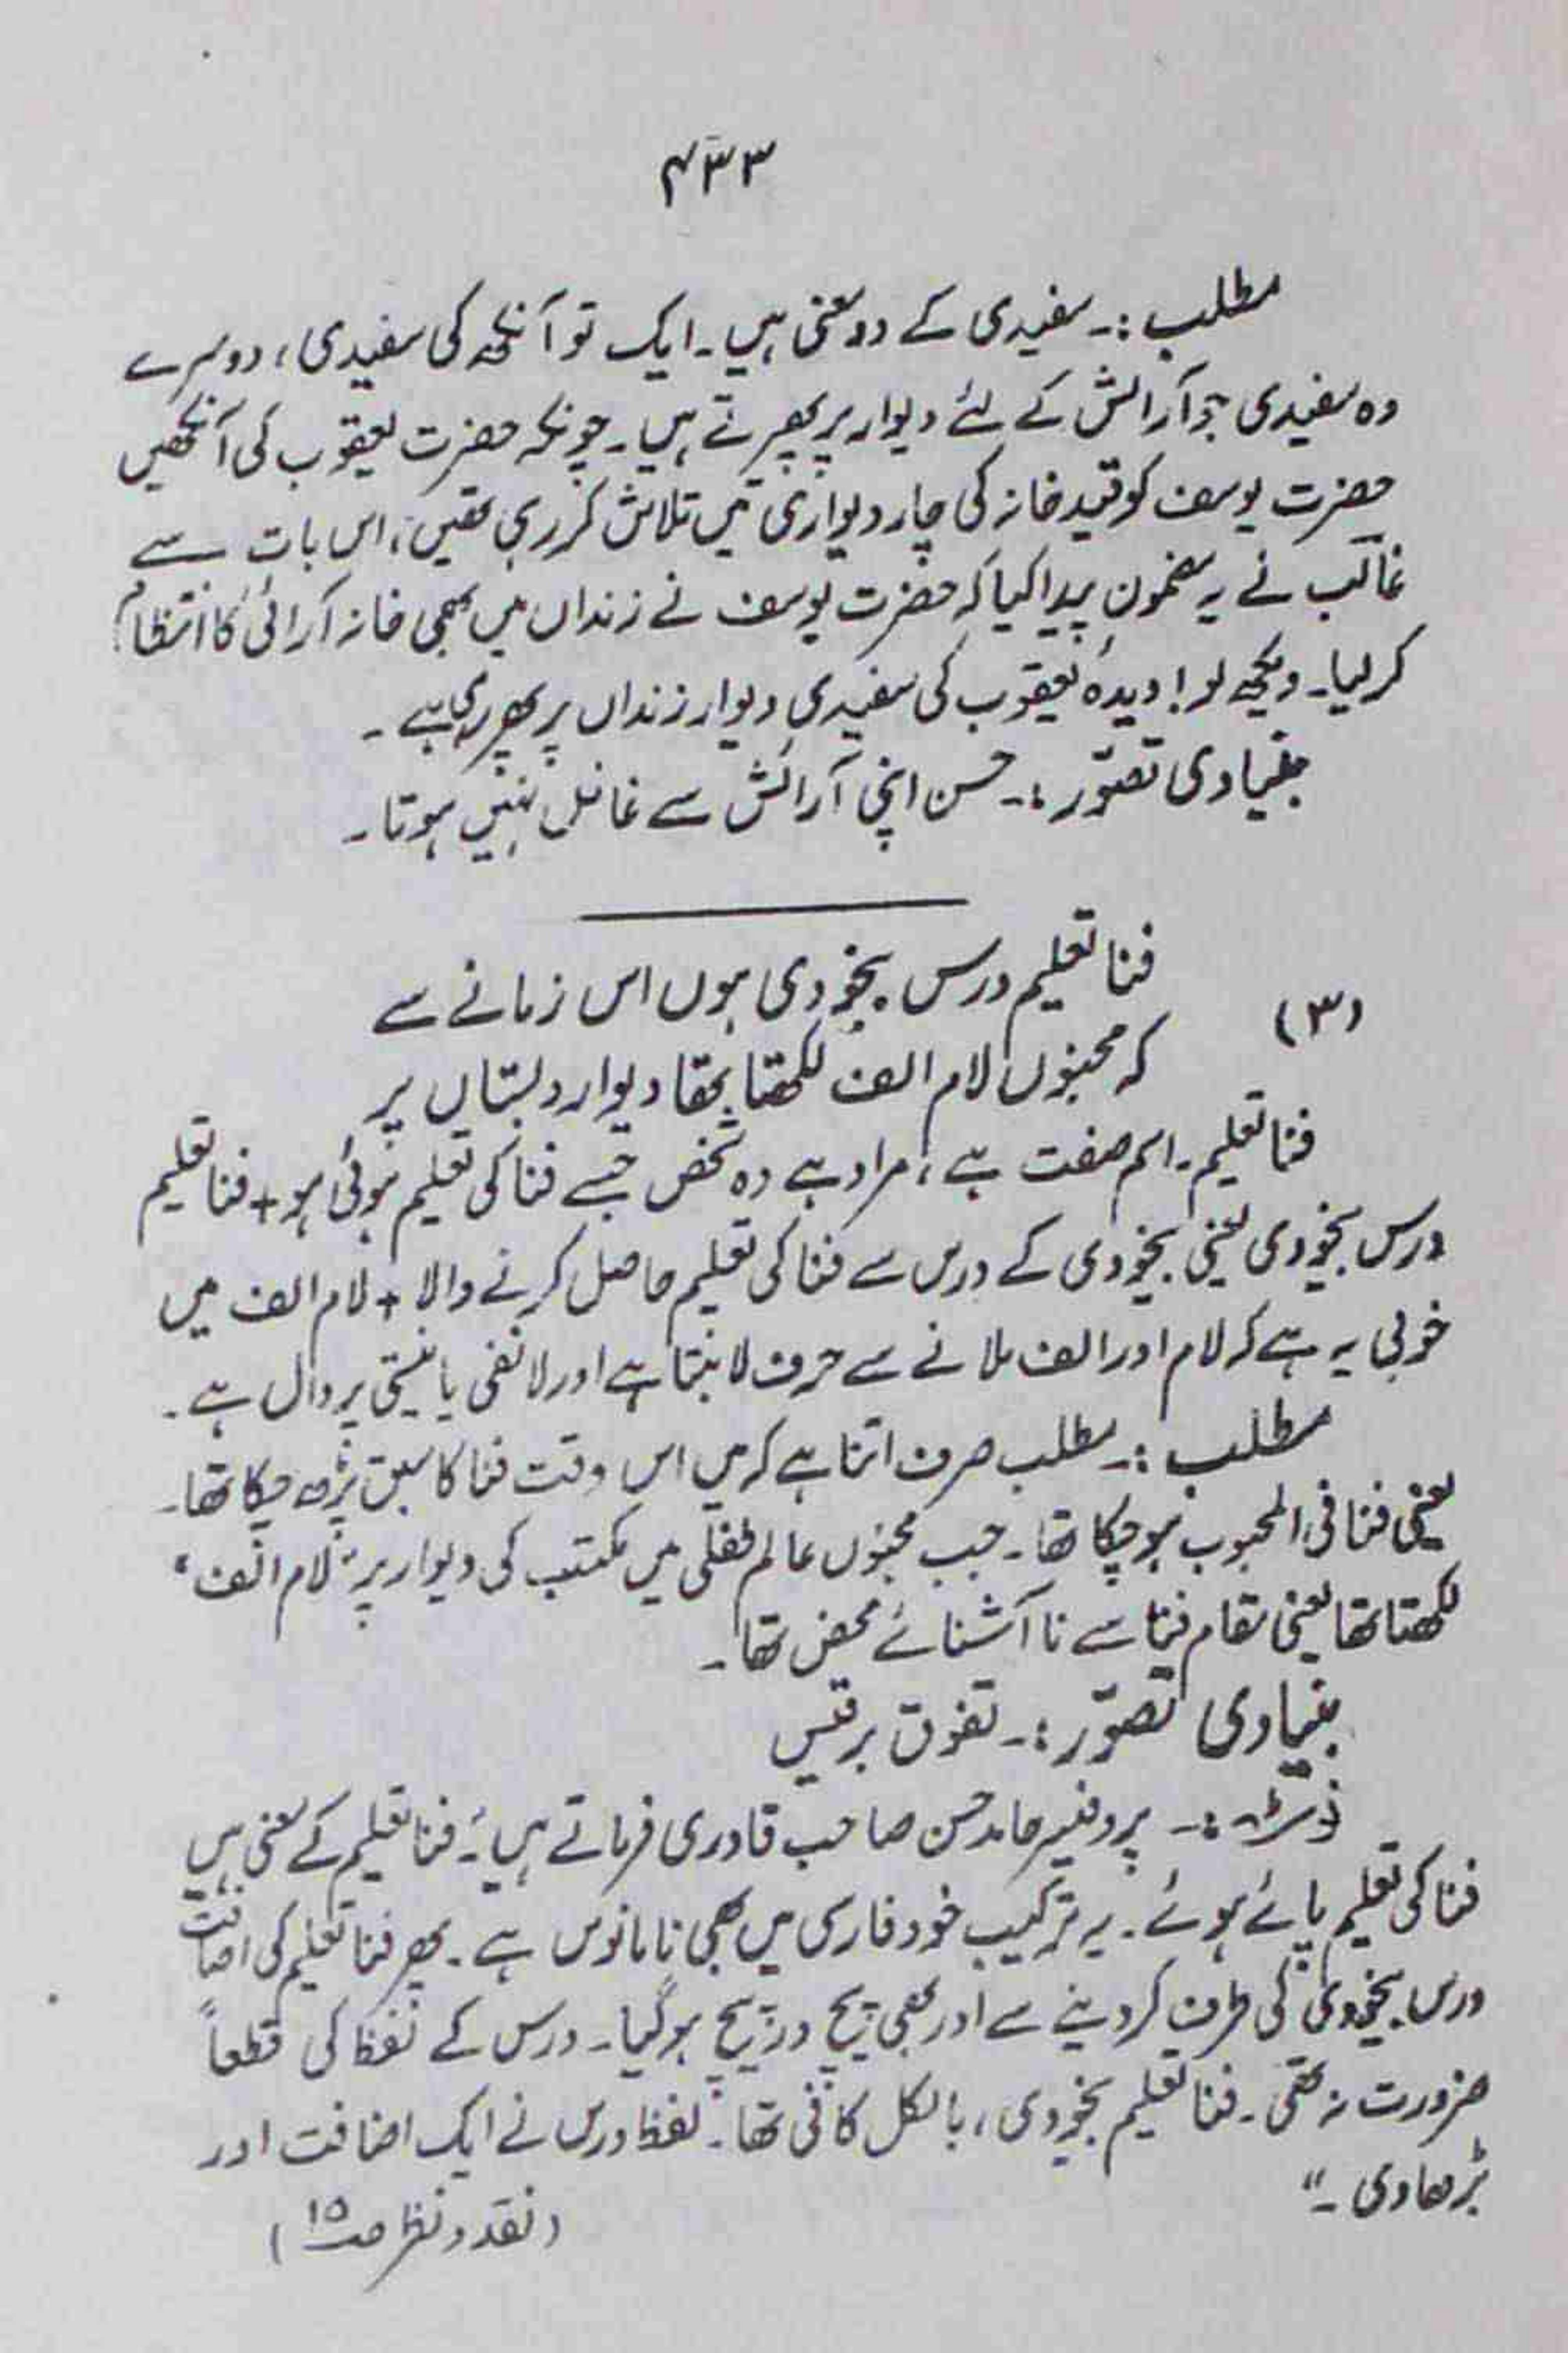 ۴۳۳
مطلب :۔ سفیدی کے دو معنی ہیں ۔ ایک تو آنکھ کی سفیدی ، دوسرے
وہ سفیدی جو آرائش کے لئے دیوار پر پھیرتے ہیں ۔ چونکہ حضرت یعقوب کی آنکھیں
حضرت یوسف کو قید خانہ کی چار دیواری میں تلاش کر رہی تھیں ، اس بات سے
غالب نے یہ مضمون پیدا کیا کہ حضرت یوسف نے زنداں میں بھی خانہ آرائی کا انتظام
کر لیا ۔ دیکھ لو ! دیدۂ یعقوب کی سفیدی دیوار زنداں پر پھر رہی ہے ۔
بنیادی تصوّر :۔ حسن اپنی آرائش سے غافل نہیں ہوتا ۔
(۳)
فنا تعلیم درس بیخودی ہوں اس زمانے سے
کہ مجنوں لام الف لکھتا تھا دیوار دبستاں پر
فنا تعلیم ۔ اسم صفت ہے ، مراد ہے وہ شخص جسے فنا کی تعلیم ہوئی ہو + فنا تعلیم
درس بیخودی یعنی بیخودی کے درس سے فنا کی تعلیم حاصل کرنے والا + لام الف میں
خوبی یہ ہے کہ لام اور الف ملانے سے حرف لا بنتا ہے اور لا نفی یا نیستی پر دال ہے ۔
مطلب :۔ مطلب صرف اتنا ہے کہ میں اس وقت فنا کا سبق پڑھ چکا تھا ۔
یعنی فنا فی المحبوب ہو چکا تھا ۔ جب مجنوں عالم طفلی میں مکتب کی دیوار پر "لام الف"
لکھتا تھا یعنی مقام فنا سے نا آشنائے محض تھا ۔
بنیادی تصوّر :۔ تفوق بر قیس
نوٹ :۔ پروفیسر حامد حسن صاحب قادری فرماتے ہیں "۔ فنا تعلیم کے معنی ہیں
فنا کی تعلیم پائے ہوئے ۔ یہ ترکیب خود فارسی میں بھی نامانوس ہے ۔ پھر فنا تعلیم کی اضافت
درس بیخودی کی طرف کر دینے سے اور بھی پیچ در پیچ ہو گیا ۔ درس کے لفظ کی قطعاً
ضرورت نہ تھی ۔ فنا تعلیم بیخودی ، بالکل کافی تھا ۔ لفظ درس نے ایک اضافت اور
بڑھا دی ۔"
(نقد و نظر صـ ۱۵)